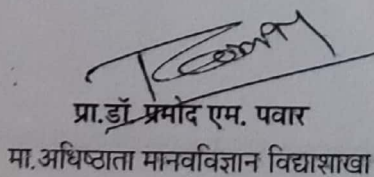 प्रा.डॉ.प्रमोद एम. पवार
मा.अधिष्ठाता मानवविज्ञान विद्याशाखा